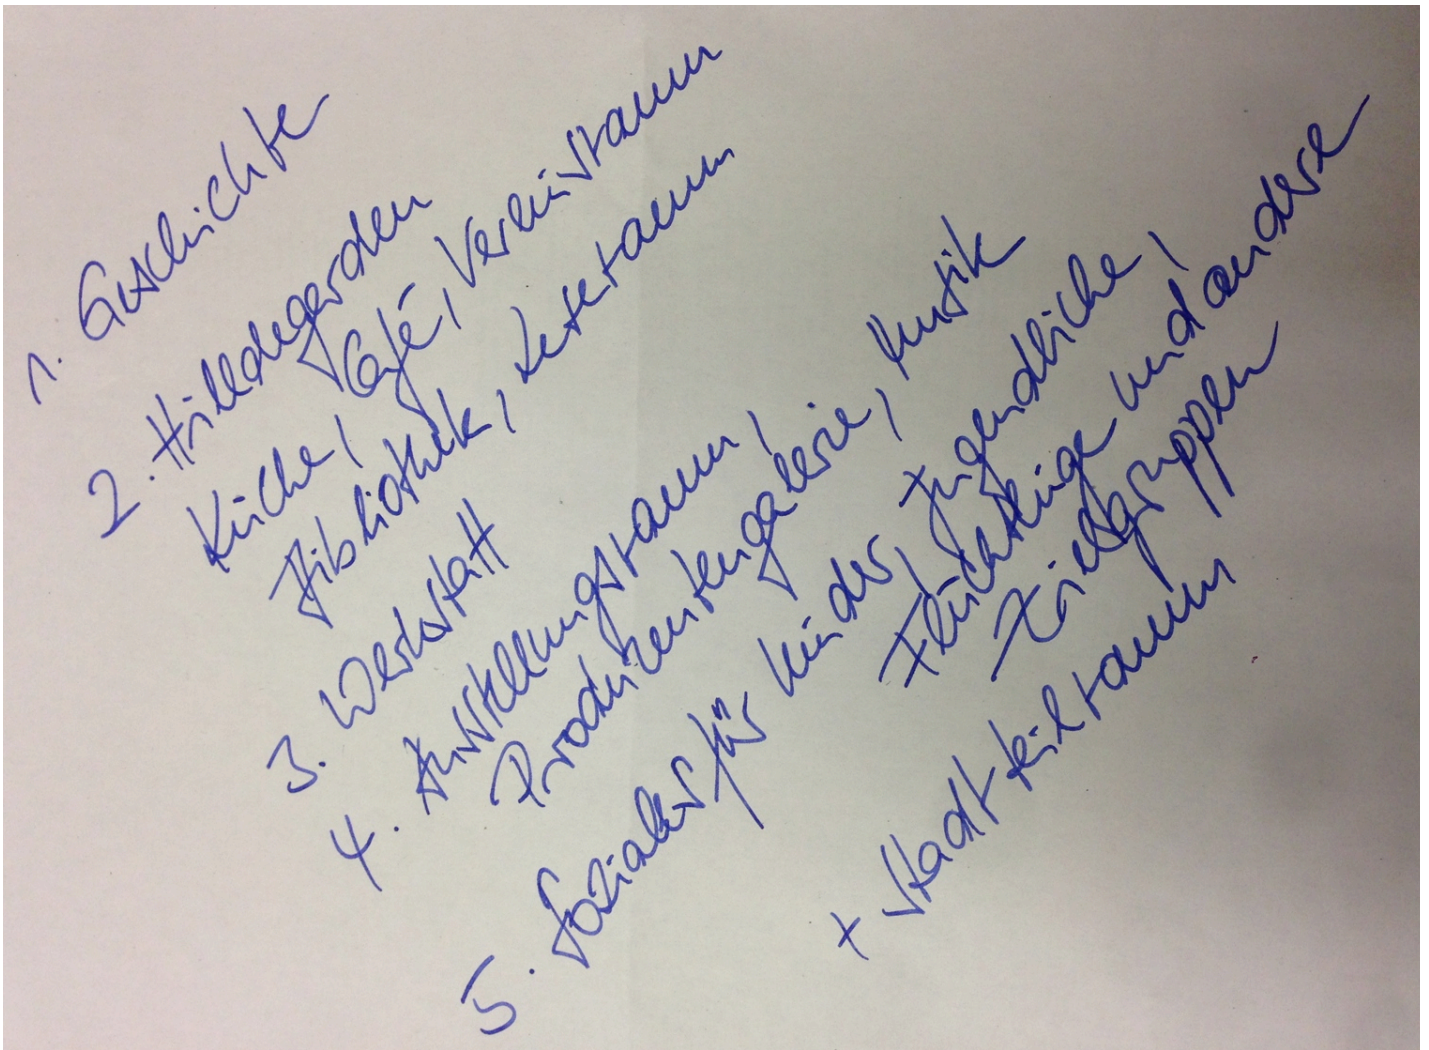 1. Geschichte
2. Hilldegarden
Küche, Café, Vereinsraum
Bibliothek, Leseraum
3. Werkstatt
4. Ausstellungsraum,
Produzentengalerie, Musik
5. Soziales für Kinder, Jugendliche,
Flüchtlinge und andere
Zielgruppen
+ Stadtteilraum